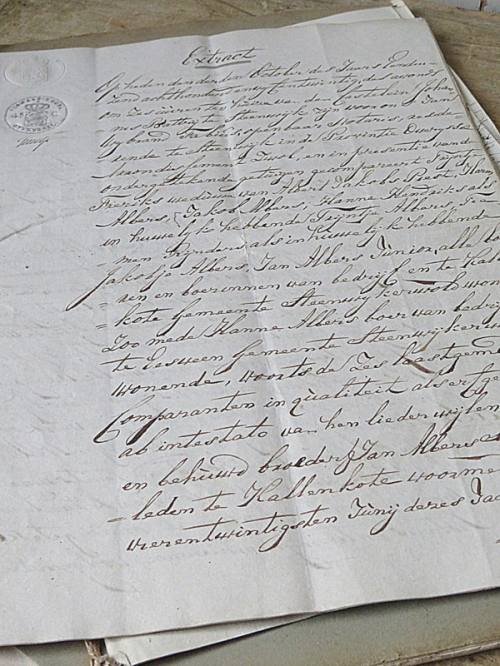 Extract
Op heden den derden October des Jaars Een dui-
zend achthonderd en en twintig des avonds
om zes uuren ten huize van den Castelein Johan
te Steenwijk zijn voor ons Jan
openbaar Notaris, resid-
te Steenwijk in de Provintie Overijssel
en in presentie van de
ondergetekende getuigen gecompareert Trijntje
weduwe van Albert Jakobs Post, Harm
Albers, Jakob Albers, Hanne Hendriks als
in huwelijk hebbende Trijntje Albers,
men als in huwelijk hebbende
Jakobje Albers, Jan Albers Junior, alle boe-
ren en boerinnen van bedrijf en te Kallen
= kote gemeente Steenwijkerwold won
Zoo mede Hanne Albers, boer van bedrijf
te Eesveen gemeente Steenwijkerw
wonende, voorts de Zes laastgem
Comparanten in qualiteit als erfge
ab intestato van hen lieder wijlen
en behuwd broeder Jan Albers
- leden te Kallenkote voorme
vierentwintigsten Junij dezes Jaa